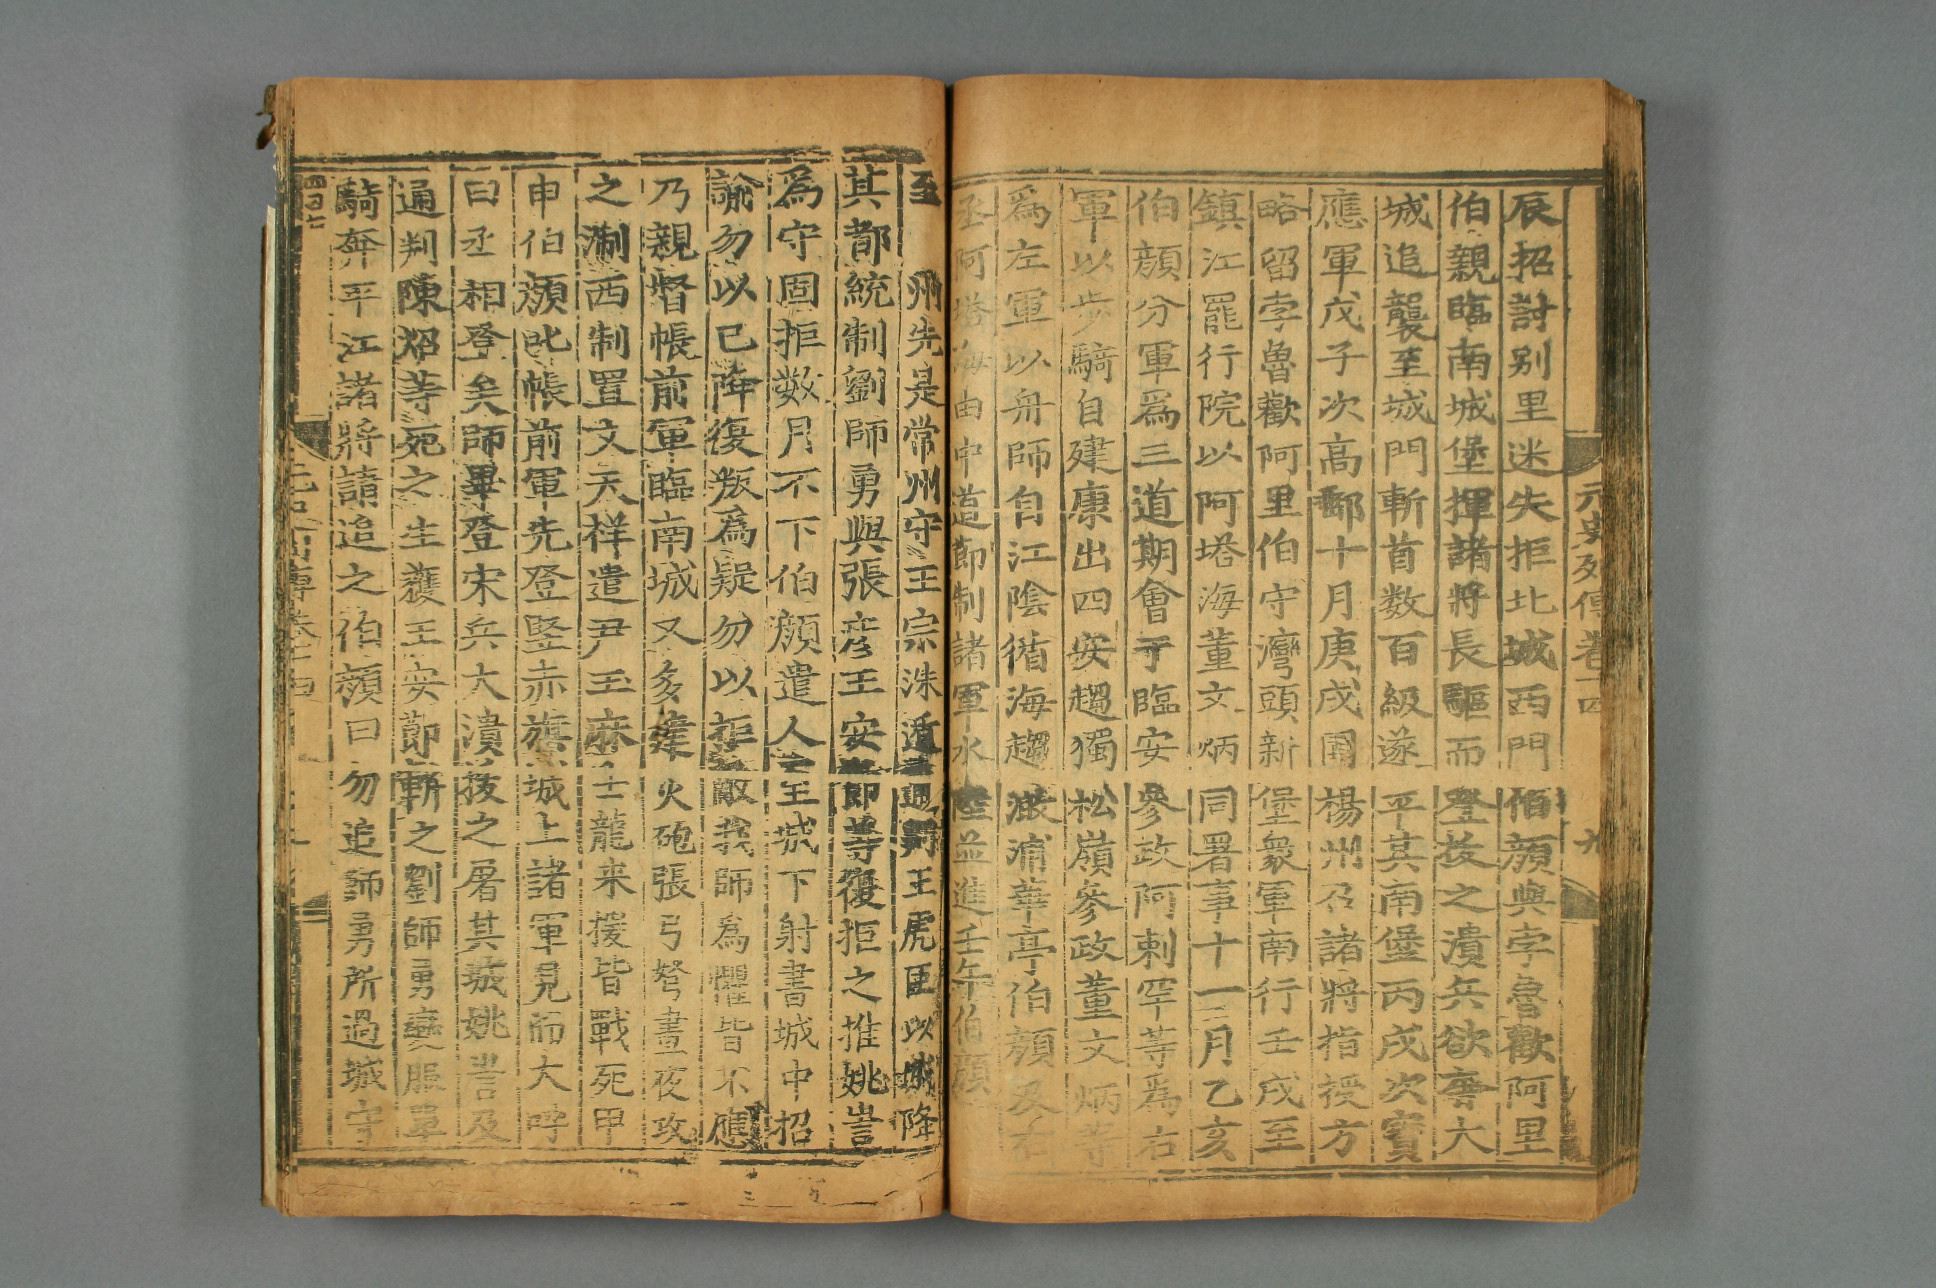 元史列傳卷十四 九
辰招討別里迷失拒北城西門伯顔與孛魯歡阿里
伯親臨南城堡揮諸將長驅而登拔之潰兵欲奔大
城追襲至城門斬首数百級遂平其南堡丙戌次寳
應軍戊子次髙郵十月庚戌圍楊州召諸將指授方
略留孛魯歡阿里伯守灣頭新堡衆軍南行壬戌至
鎮江罷行院以阿塔海董文炳同署事十一月乙亥
伯顔分軍爲三道期會于臨安參政阿剌罕等爲右
軍以步騎自建康出四安趨獨松嶺參政董文炳等
爲左軍以舟師自江陰循海趨澉浦華亭伯顔及右
丞阿塔海由中道節制諸軍水陸並進壬午伯顔
至 州先是常州守王宗洙遁通判王虎臣以城降
其都統制劉師勇與張彦王安節等復拒之推姚訔
爲守固拒数月不下伯顔遣人至城下射書城中招
諭勿以已降復叛爲疑勿以拒敵我師爲懼皆不應
乃親督帳前軍臨南城又多建火砲張弓弩晝夜攻
之淛西制置文天祥遣尹玉麻士龍来援皆戰死甲
申伯顔叱帳前軍先登竪赤旗城上諸軍見而大呼
曰丞相登矣師畢登宋兵大潰拔之屠其城姚訔及
通判陳炤等死之生獲王安節斬之劉師勇變服單
騎奔平江諸將請追之伯顔曰勿追師勇所過城守